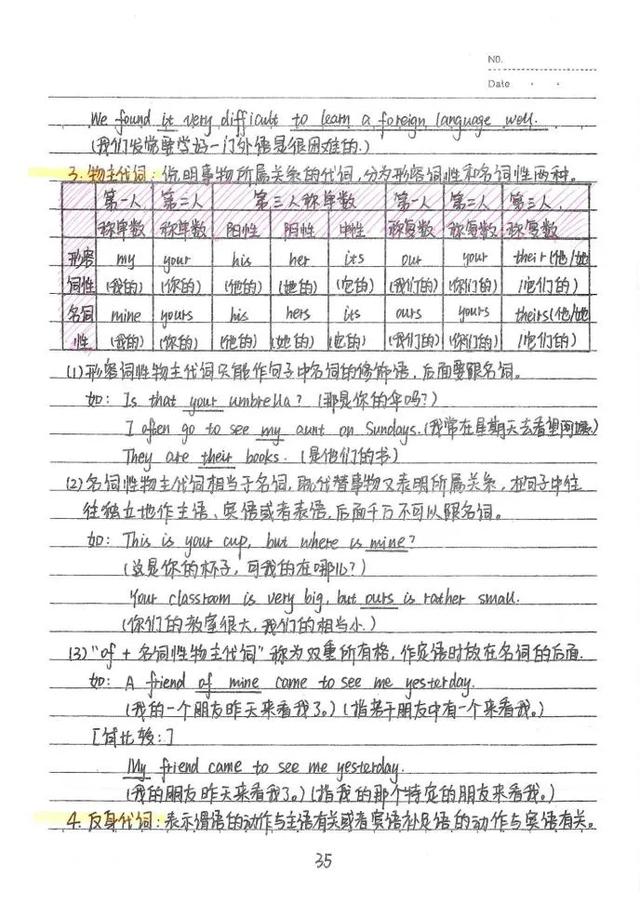 NO.
Date
We found it very difficult to learn a foreign language well.
(我们发觉要学好一门外语是很困难的.)
3. 物主代词: 说明事物所属关系的代词, 分为形容词性和名词性两种。
第一人 第二人 第三人称单数 第一人 第二人 第三人
称单数 称单数 阳性 阴性 中性 称复数 称复数 称复数
形容 my your his her its our your their(他/她
词性 (我的) (你的) (他的) (她的) (它的) (我们的) (你们的) /它们的)
名词 mine yours his hers its ours yours theirs(他/她
性 (我的) (你的) (他的) (她的) (它的) (我们的) (你们的) /它们的)
(1)形容词性物主代词只能作句子中名词的修饰语, 后面要跟名词。
如: Is that your umbrella? (那是你的伞吗?)
I often go to see my aunt on Sundays. (我常在星期天去看望阿姨)
They are their books. (是他们的书)
(2)名词性物主代词相当于名词, 既代替事物又表明所属关系, 在句子中往
往独立地作主语、宾语或者表语, 后面千万不可以跟名词。
如: This is your cup, but where is mine?
(这是你的杯子, 可我的在哪儿?)
Your classroom is very big, but ours is rather small.
(你们的教室很大, 我们的相当小.)
(3)"of + 名词性物主代词"称为双重所有格, 作定语时放在名词的后面.
如: A friend of mine came to see me yesterday.
(我的一个朋友昨天来看我了。) (指若干朋友中有一个来看我。)
[试比较:]
My friend came to see me yesterday.
(我的朋友昨天来看我了。) (指我的那个特定的朋友来看我。)
4. 反身代词: 表示谓语的动作与主语有关或者宾语补足语的动作与宾语有关。
35